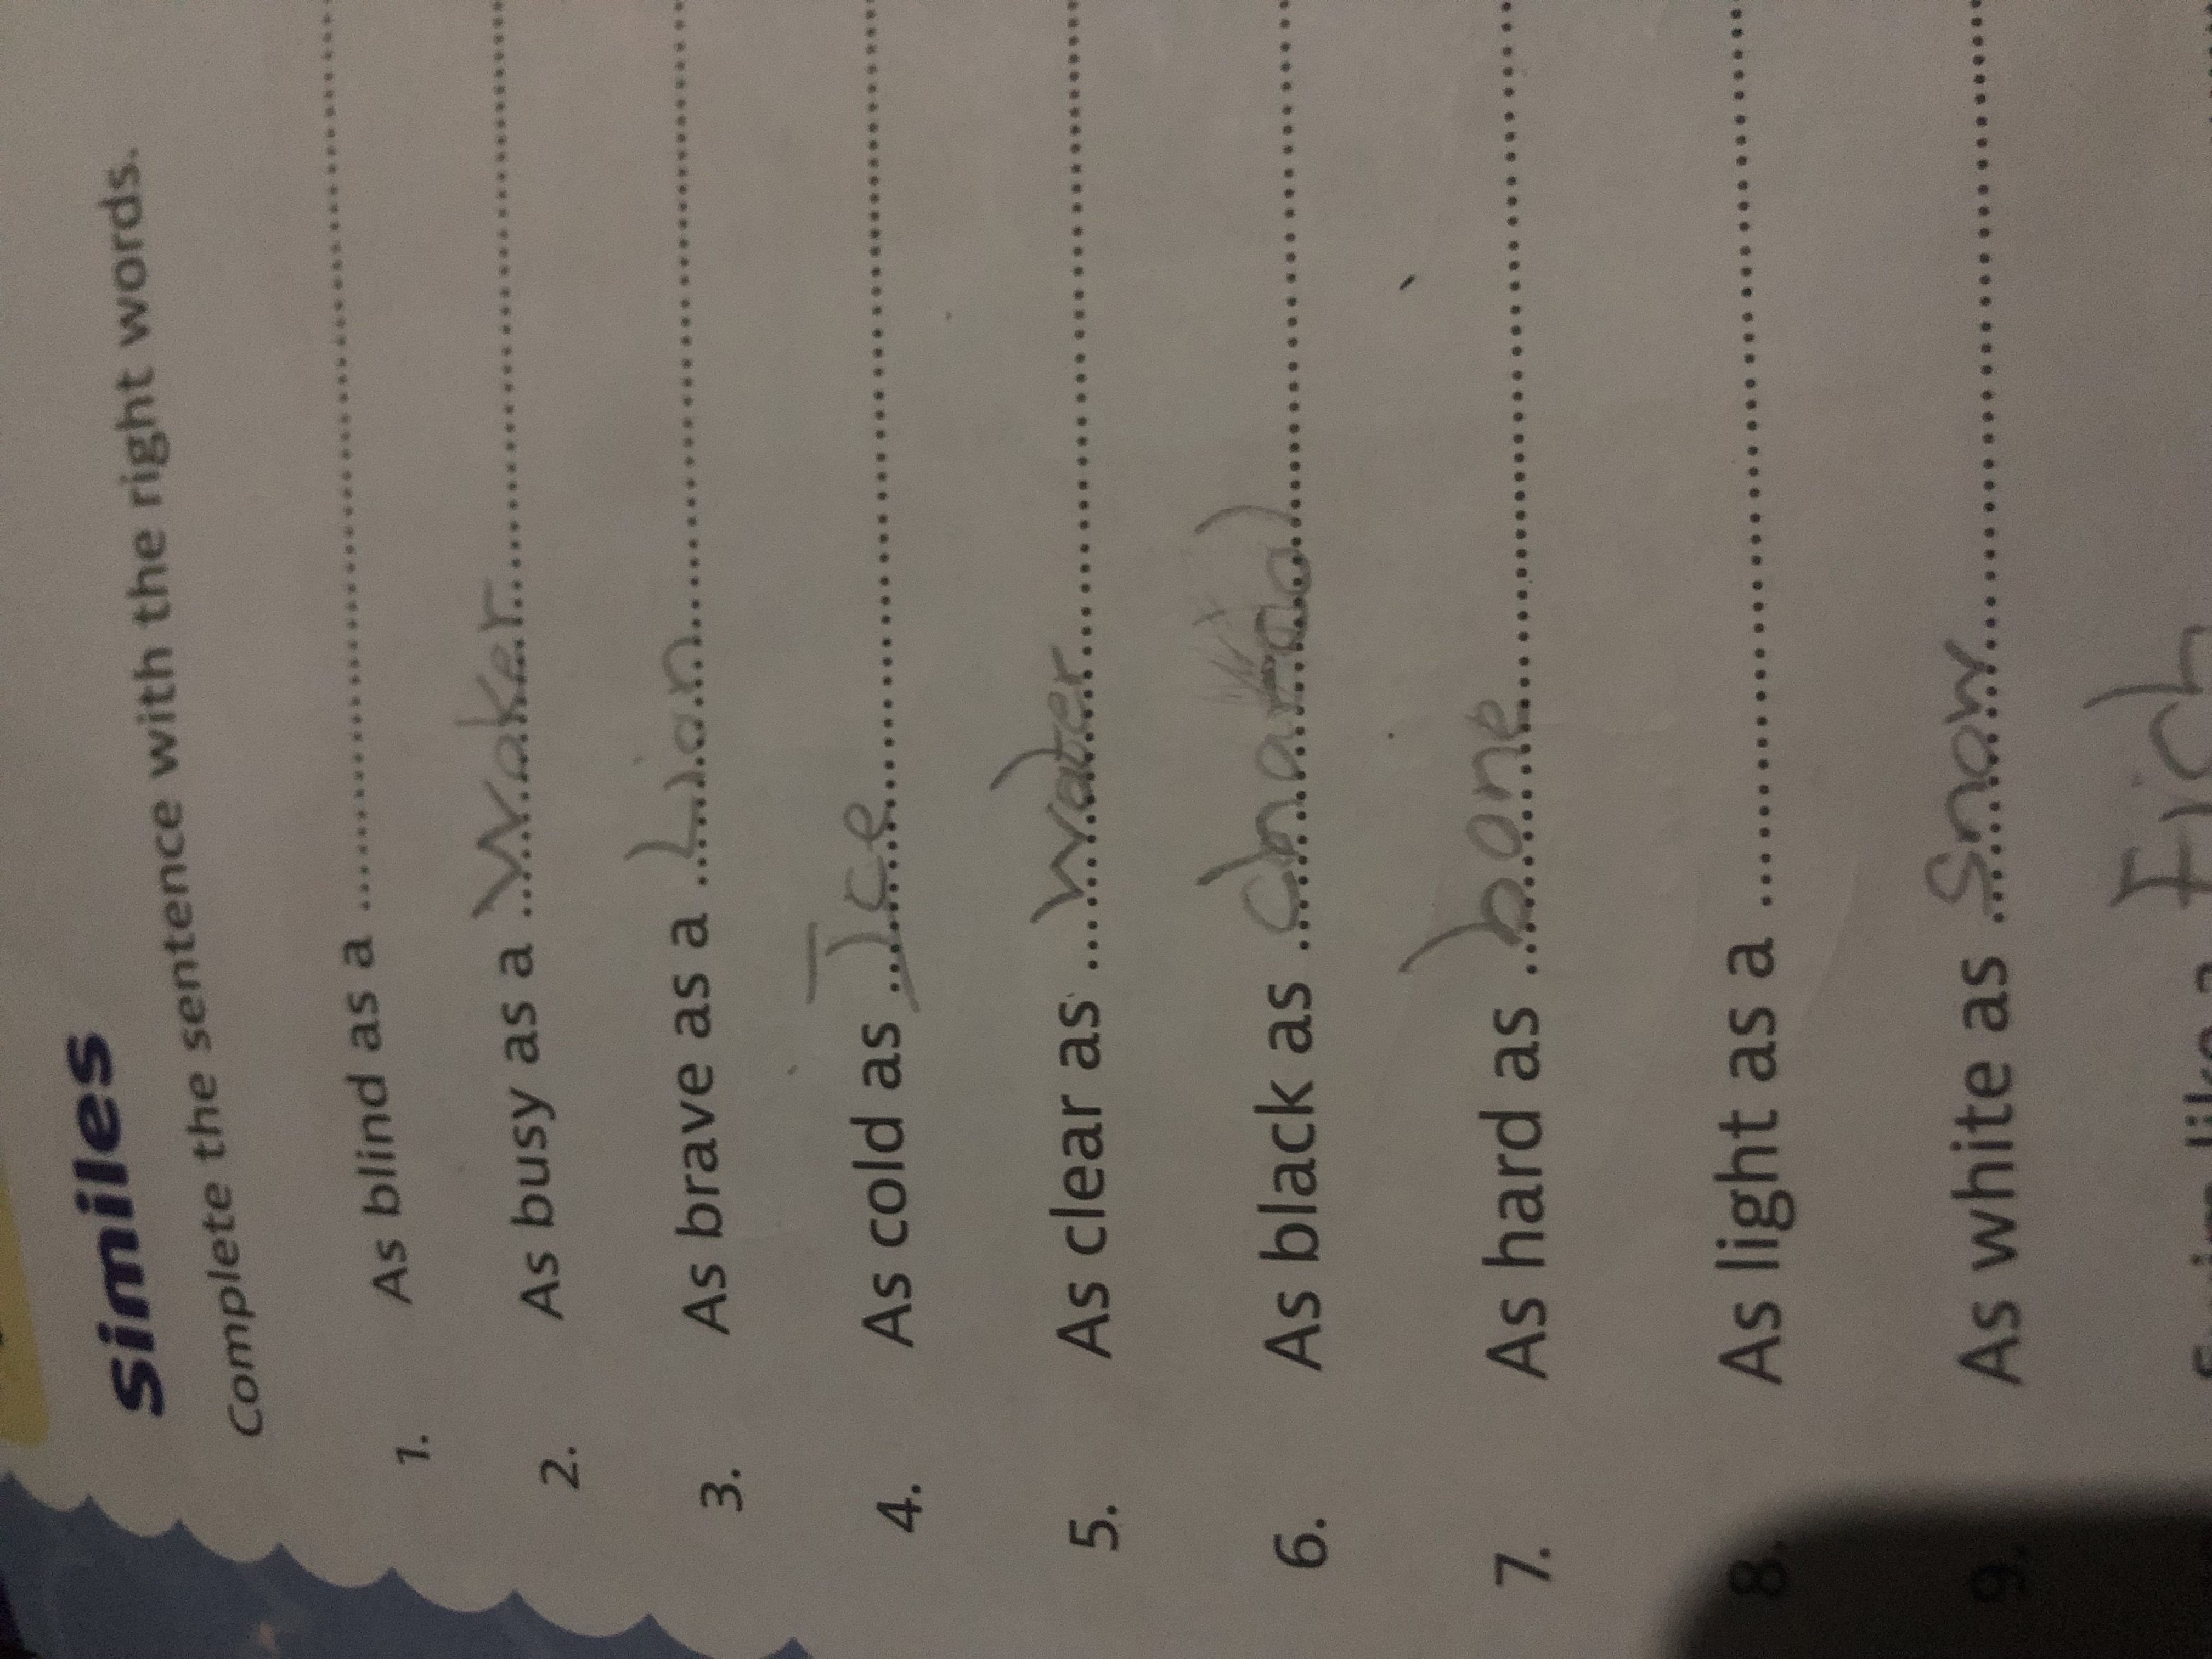 Similes
Complete the sentence with the right words.
1. As blind as a ........................
2. As busy as a Waker
3. As brave as a Lion
4. As cold as Ice
5. As clear as water
6. As black as
7. As hard as bone
8. As light as a ........................
9. As white as Snow
Swim like a Fich